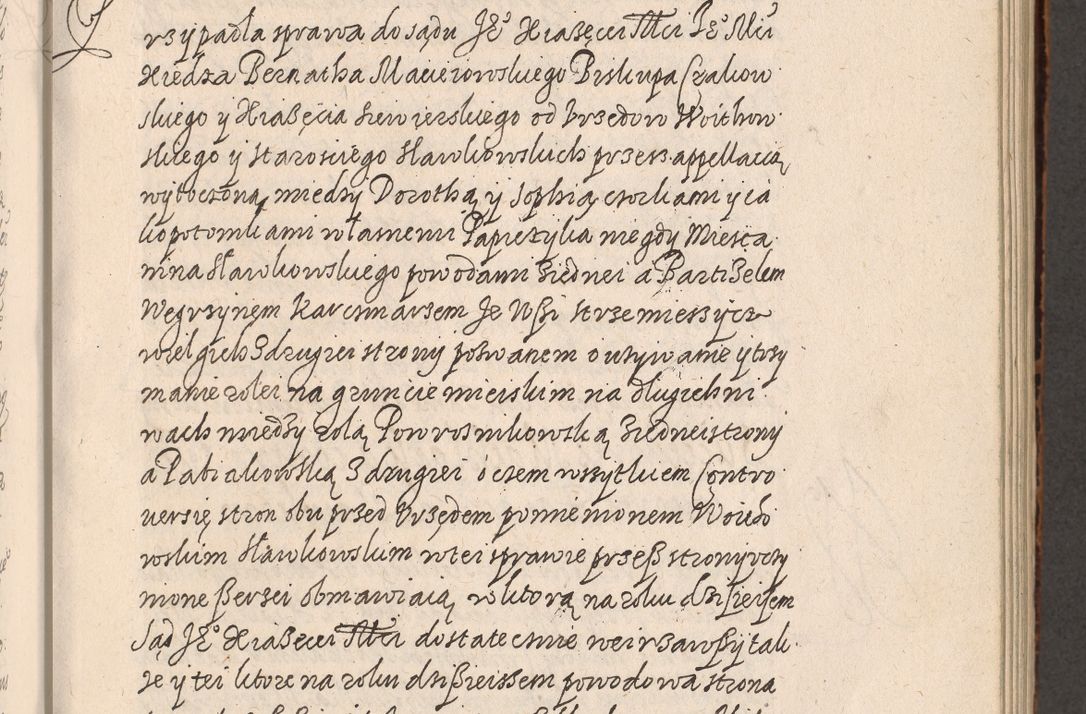 rzypadła sprawa do sądu Je° Xiążęcei Mci Je° Mci
Xiedza Bernatha Macieiowskiego Biskupa Crakow
skiego y Xiażęcia Siewierskiego od Vrzedow Woithow
skiego y Starosciego Sławkowskich przess appellacią
wytoczoną, miedzy Dorothą y Sophią cżorkami y ia
ko potomkami własnemi Papieżyka niegdy Miesca
nina Sławkowskiego powodami ziednei a Bartłzelem
Węgrzynem Karcmarzem Je
wielgich z drugiei strony pozwanem o utzywanie y trzy
manie rolei na gruncie mieiskim na długich ni
wach miedzy rolą Powroznikowską ziednei strony
a Pabiakowską z drugiei o czem wssytkiem Contro
uersię stron obu przed Vrzędem pomienionem Woitho
wskim Sławkowskim w tei sprawie przeß strony vczy
nione ßerzei obmawiaią, w ktorą na roku dzißieißem
Sąd Je° Xiażecei Mci dostatecznie weirzawßy tak
że y tei ktore na roku dzißieissem powodowa strona